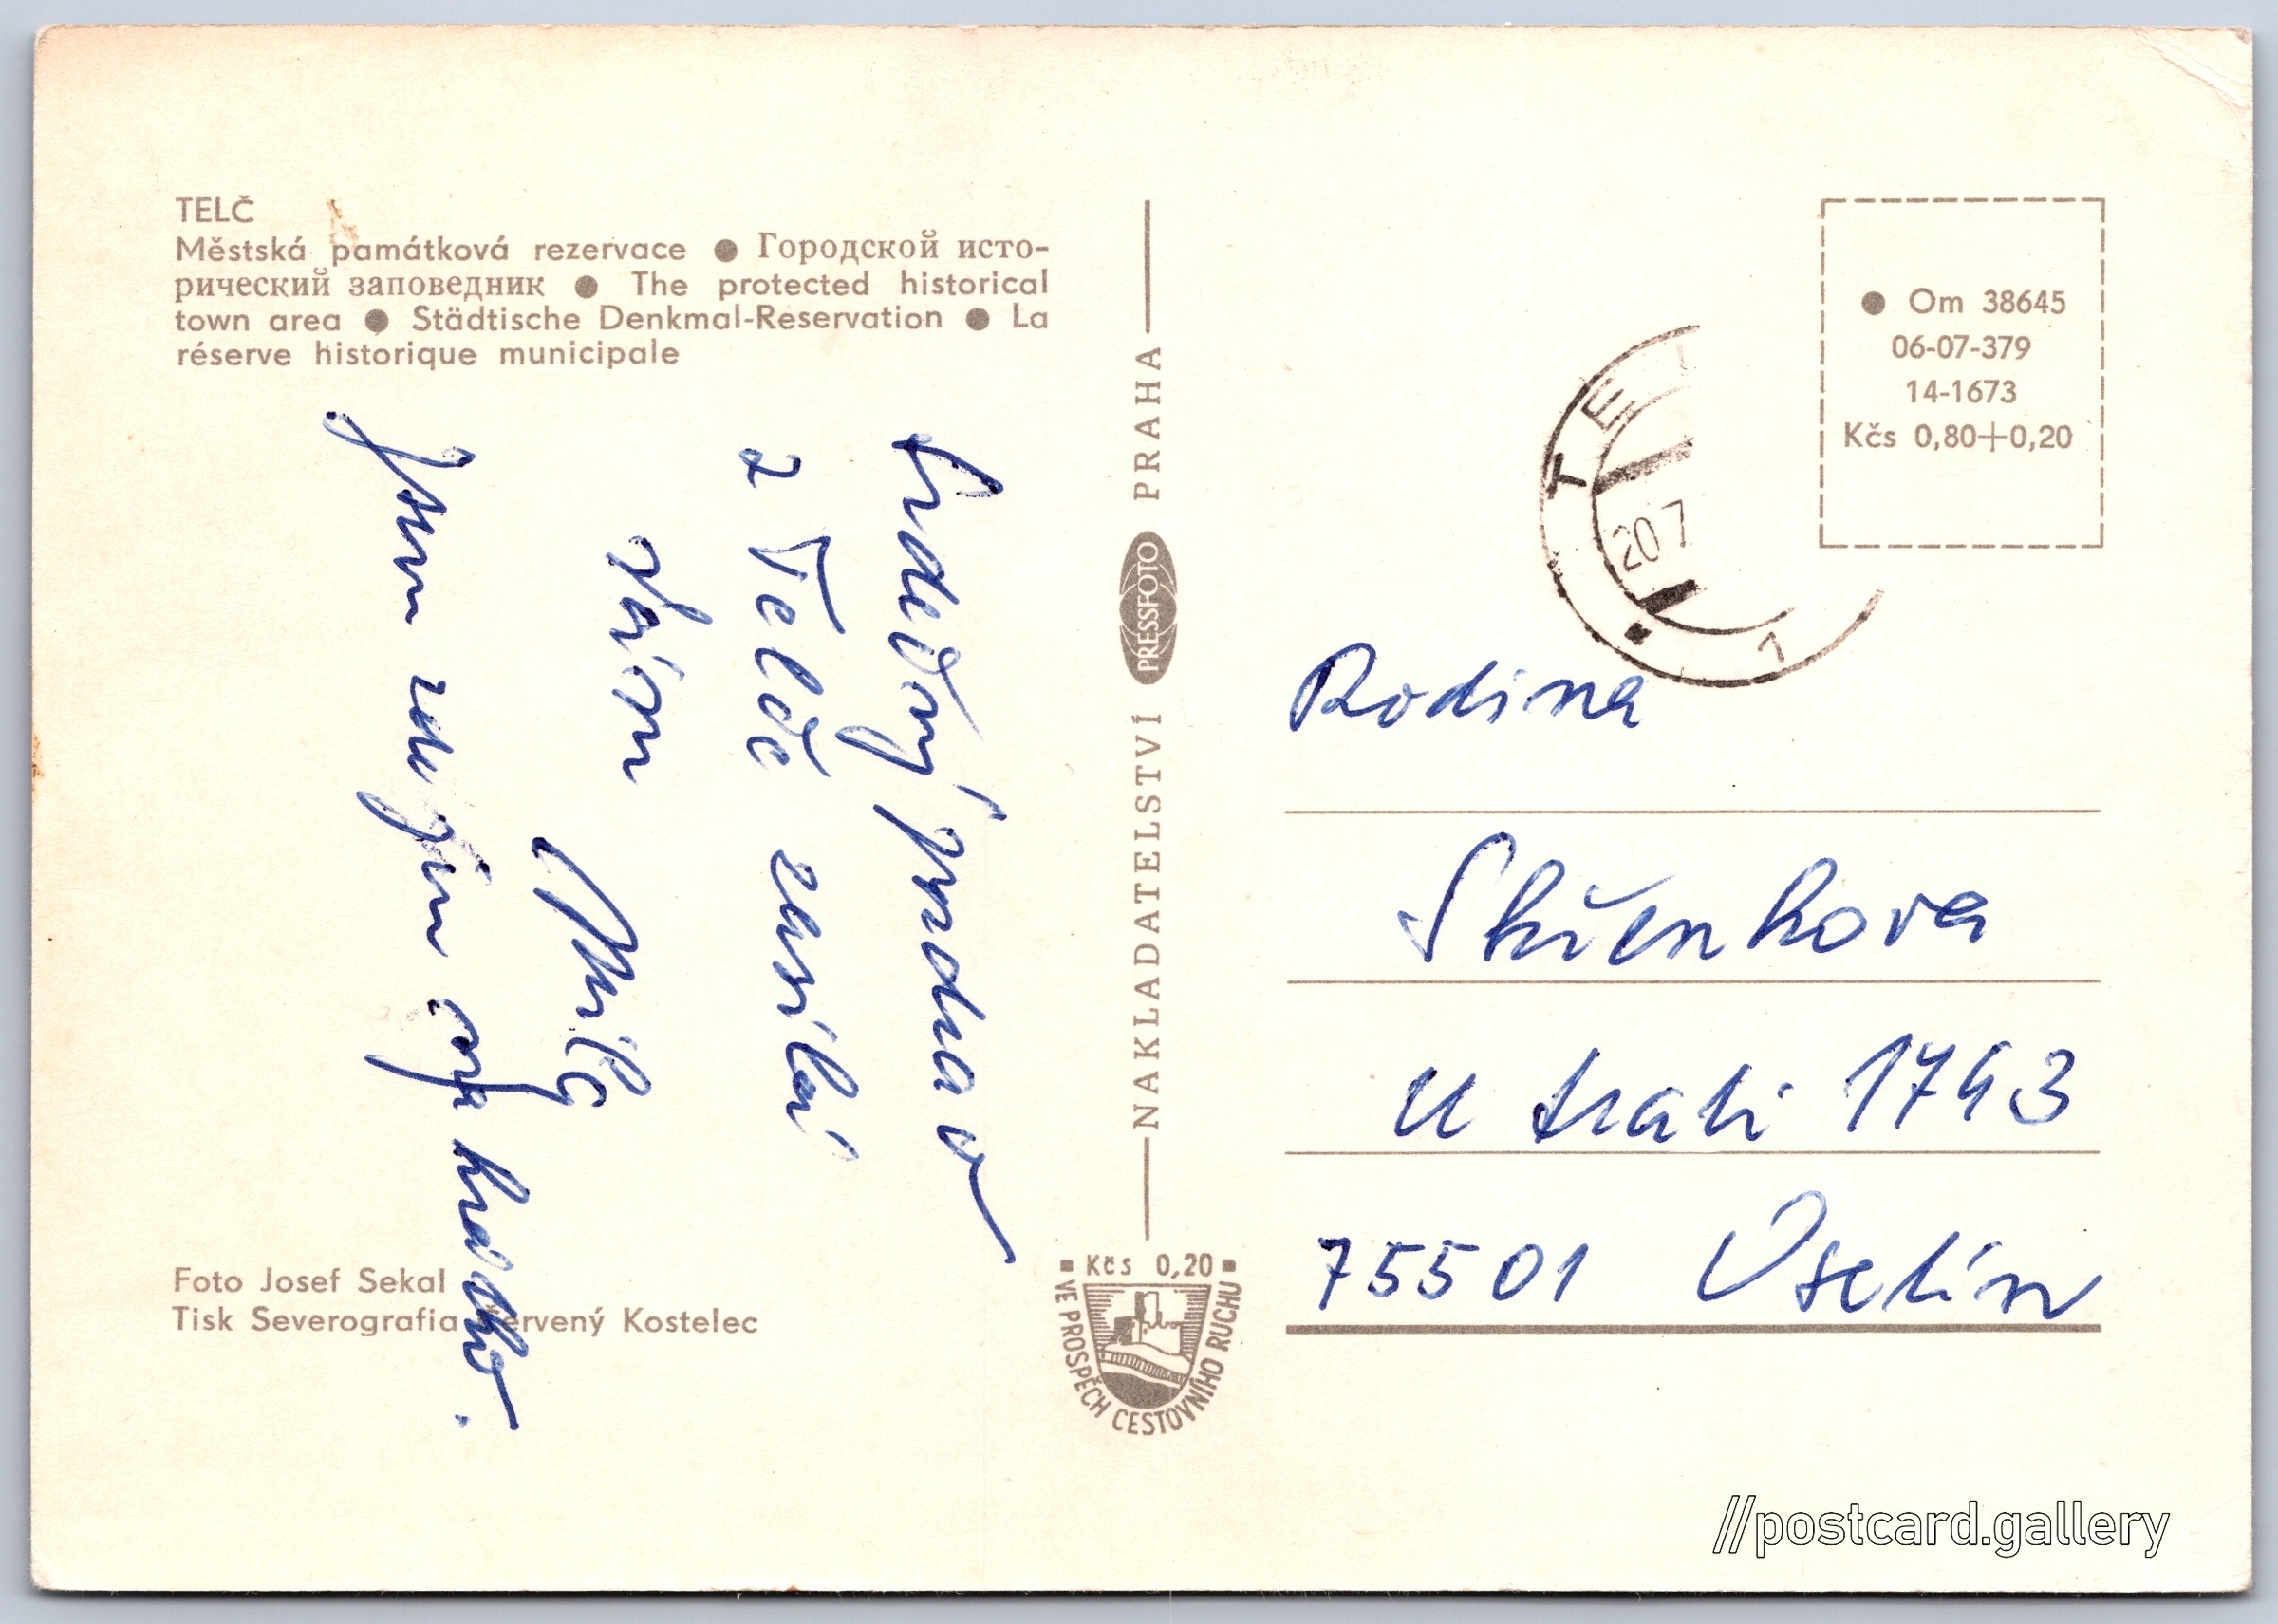 TELČ
Městská památková rezervace ● Городской исто-
рический заповедник ● The protected historical
town area ● Städtische Denkmal-Reservation ● La
réserve historique municipale
Srdečný pozdrav
z Telče zasílá
Vám
Jsem
Foto Josef Sekal
Tisk Severografia Červený Kostelec
NAKLADATELSTVÍ PRESSFOTO PRAHA
Kčs 0,20
VE PROSPĚCH CESTOVNÍHO RUCHU
● Om 38645
06-07-379
14-1673
Kčs 0,80+0,20
TEL
20 7
1
Rodina
U trati 1743
75501 Vsetín
//postcard.gallery